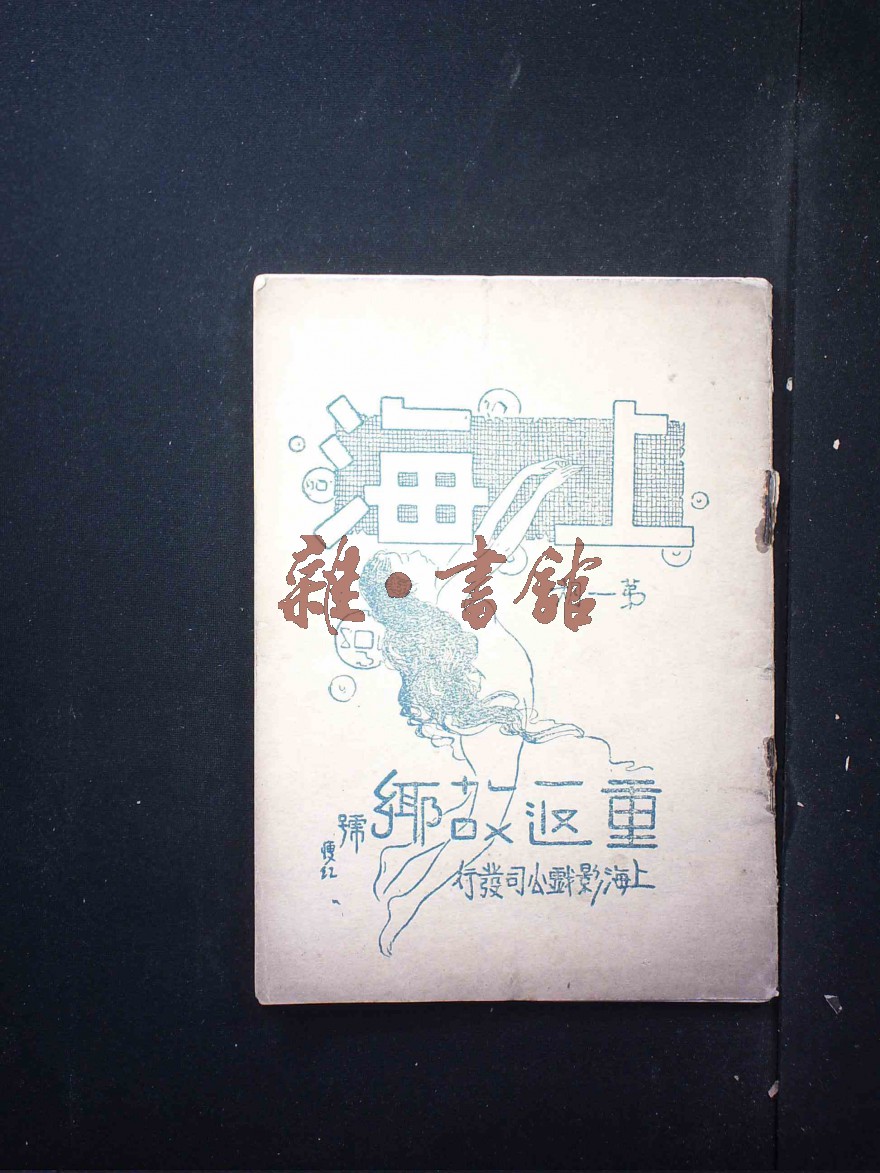 上海
第一期
雜·書館
重返故鄉號
瘦紅
上海影戲公司發行